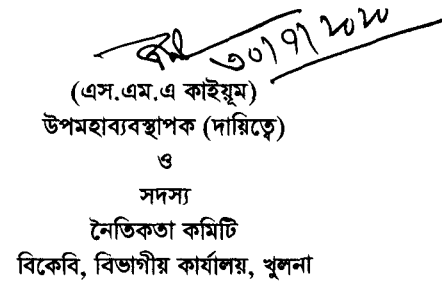 ৩০/৭/২০২০
(এস.এম.এ কাইয়ূম)
উপমহাব্যবস্থাপক (দায়িত্বে)
ও
সদস্য
নৈতিকতা কমিটি
বিকেবি, বিভাগীয় কার্যালয়, খুলনা